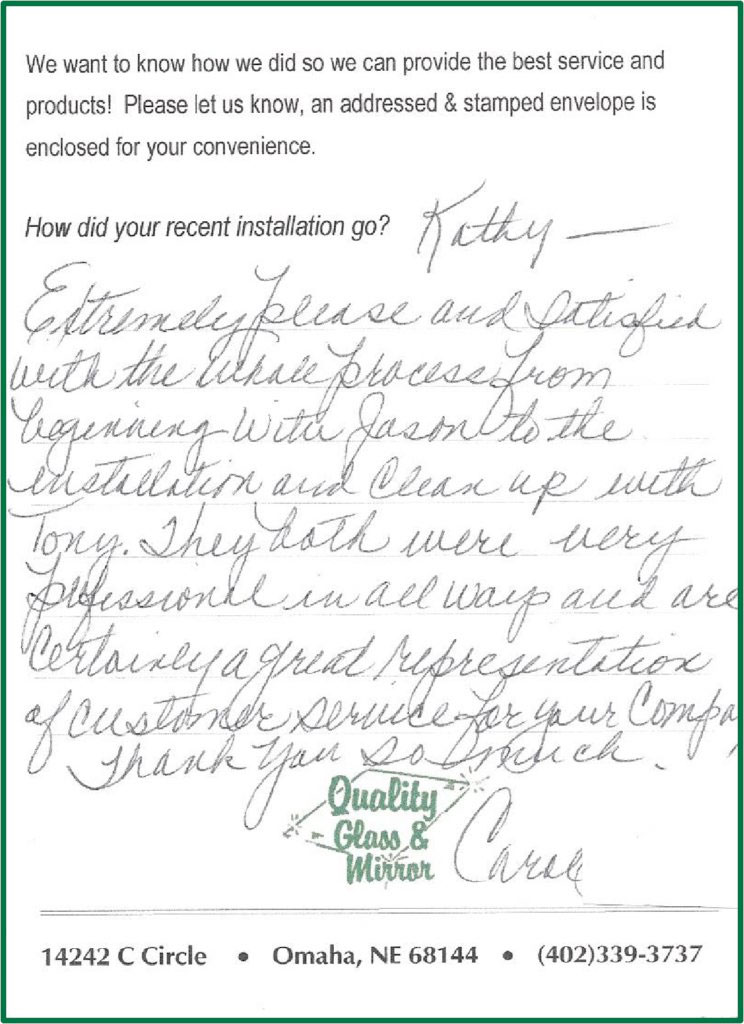 We want to know how we did so we can provide the best service and
products! Please let us know, an addressed & stamped envelope is
enclosed for your convenience.
How did your recent installation go? Kathy —
Extremely please and satisfied
with the whole process from
beginning with Jason to the
installation and clean up with
Tony. They both were very
professional in all ways and are
certainly a great representation
of customer service for your Compa
Thank You so much.
Quality
Glass &
Mirror
Carole
14242 C Circle • Omaha, NE 68144 • (402)339-3737